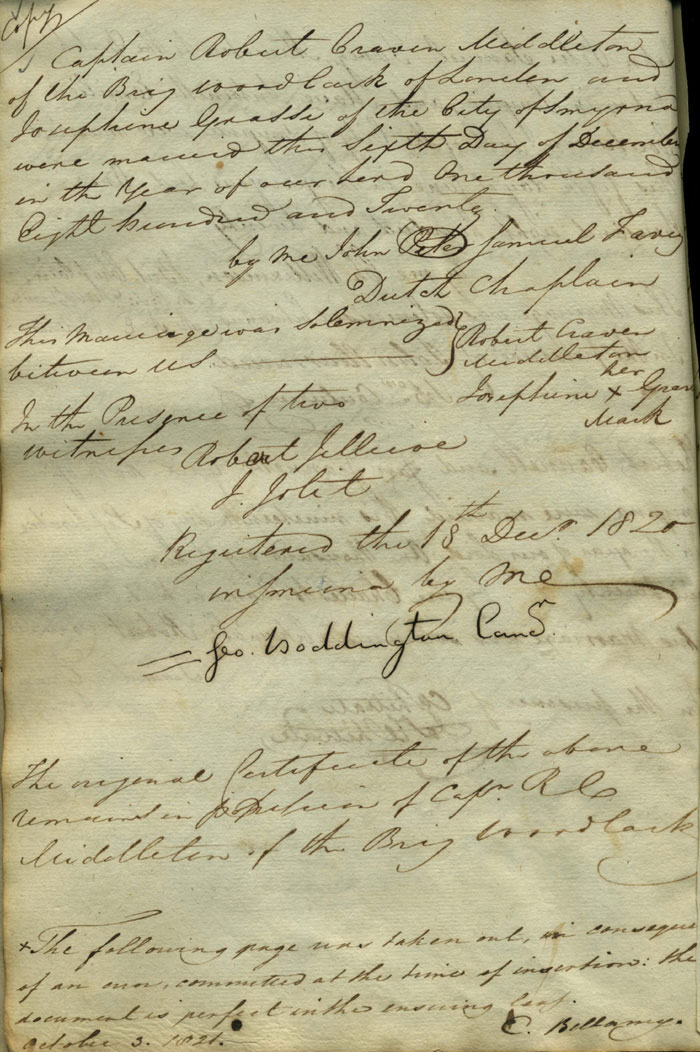 Copy
Captain Robert Craven Middleton
of the Brig Woodlark of London and
Josephine Grasse of the City of Smyrna
were married this Sixth Day of December
in the Year of our Lord One thousand
Eight hundred and Twenty.
by me John Samuel
Dutch Chaplain
This Marriage was Solemnized
between us
Robert Craven
Middleton
her
Josephine x
Mark
In the Presence of two
witnesses Robert
J. Jolit
Registered the 18th Decr. 1820
in Smirna by Me
Geo. Boddington
The original Certificate of the above
remains in of Capn. R C
Middleton of the Brig Woodlark
+ The following page was taken out, in conseque
of an error, committed at the time of insertion: the
document is perfect in the ensuing leaf.
October 3. 1821. C. Bellamy.